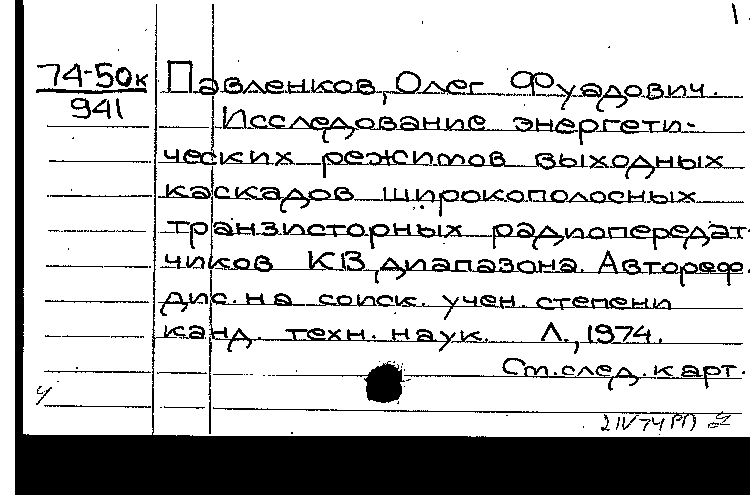 1.
74-50к
941
Павленков, Олег Фуадович.
Исследование энергети-
ческих режимов выходных
каскадов широкополосных
транзисторных радиопередат-
чиков КВ диапазона. Автореф.
дис. на соиск. учен. степени
канд. техн. наук. Л., 1974.
См. след. карт.
2 IV 74 РП